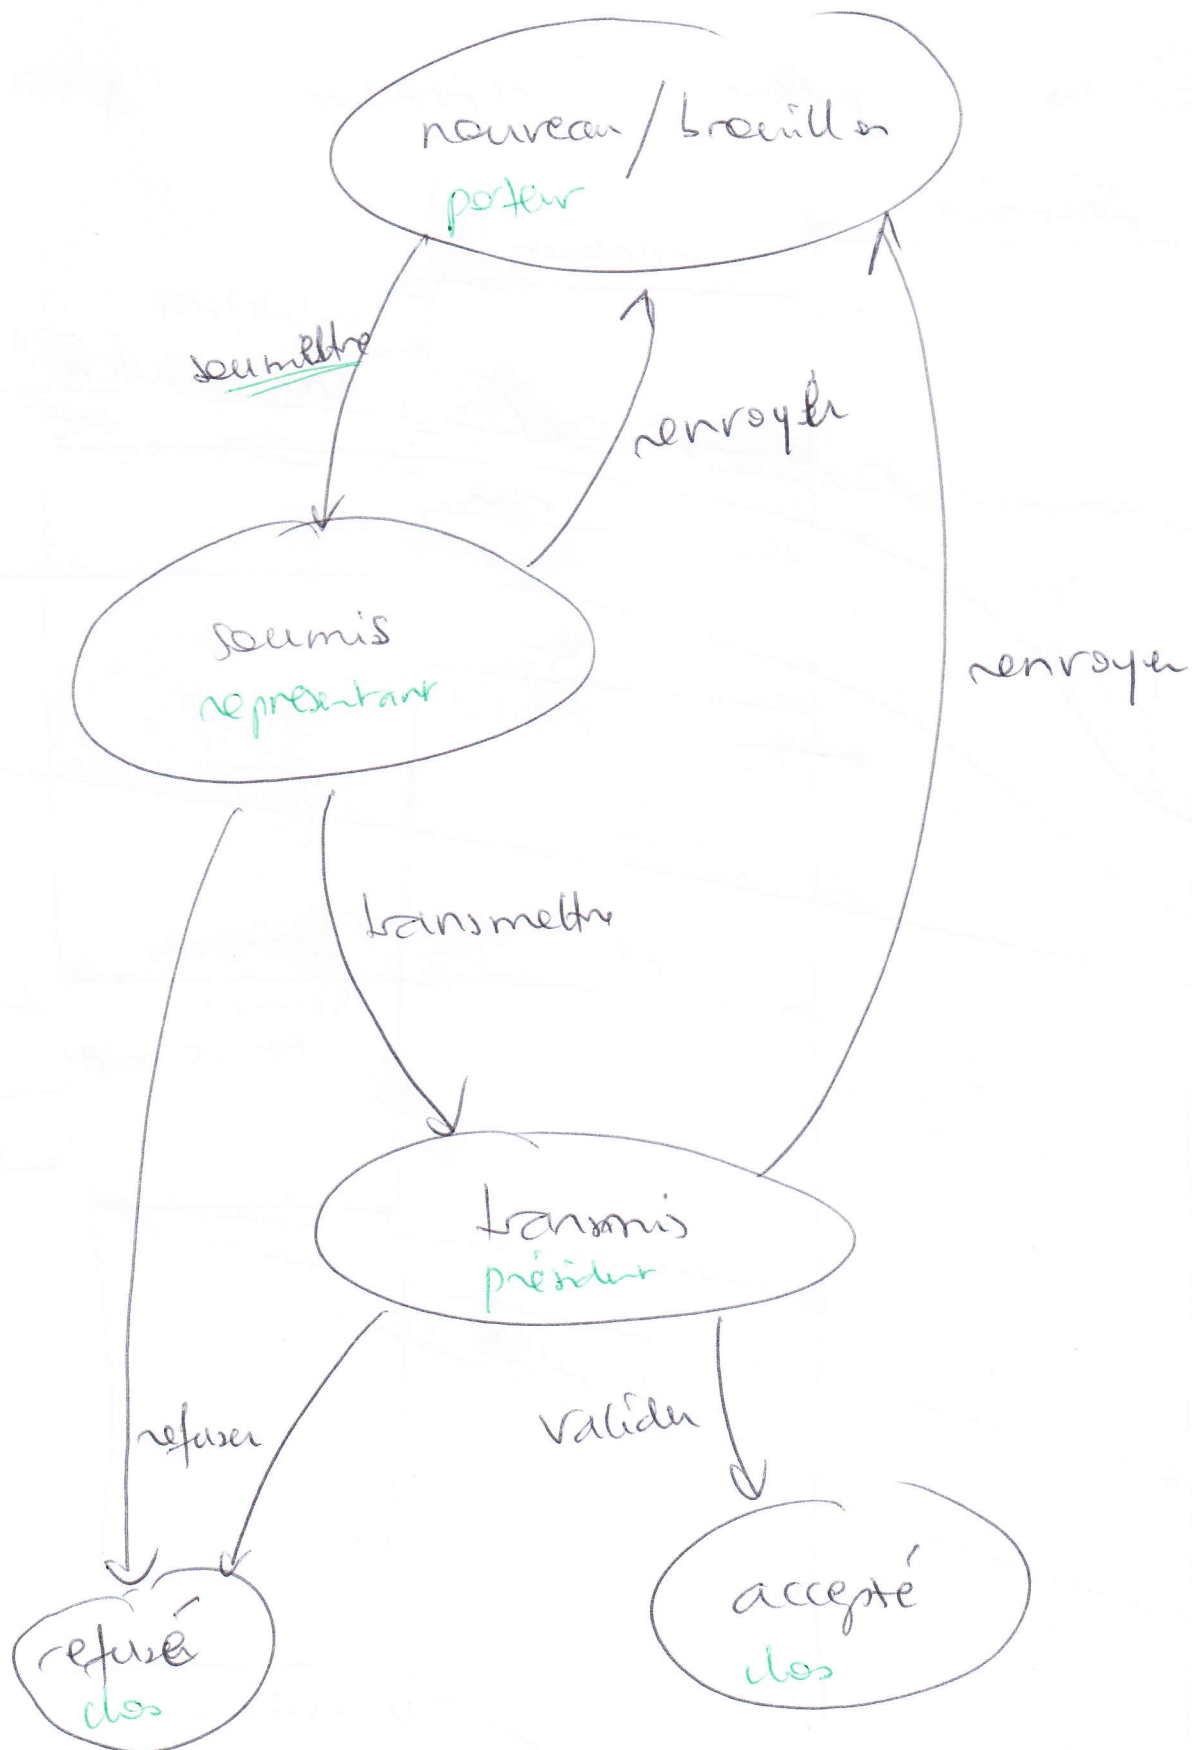 nouveau / brouillon
porteur
soumettre
renvoyer
soumis
représentant
renvoyer
transmettre
transmis
président
refuser
valider
refusé
clos
accepté
clos